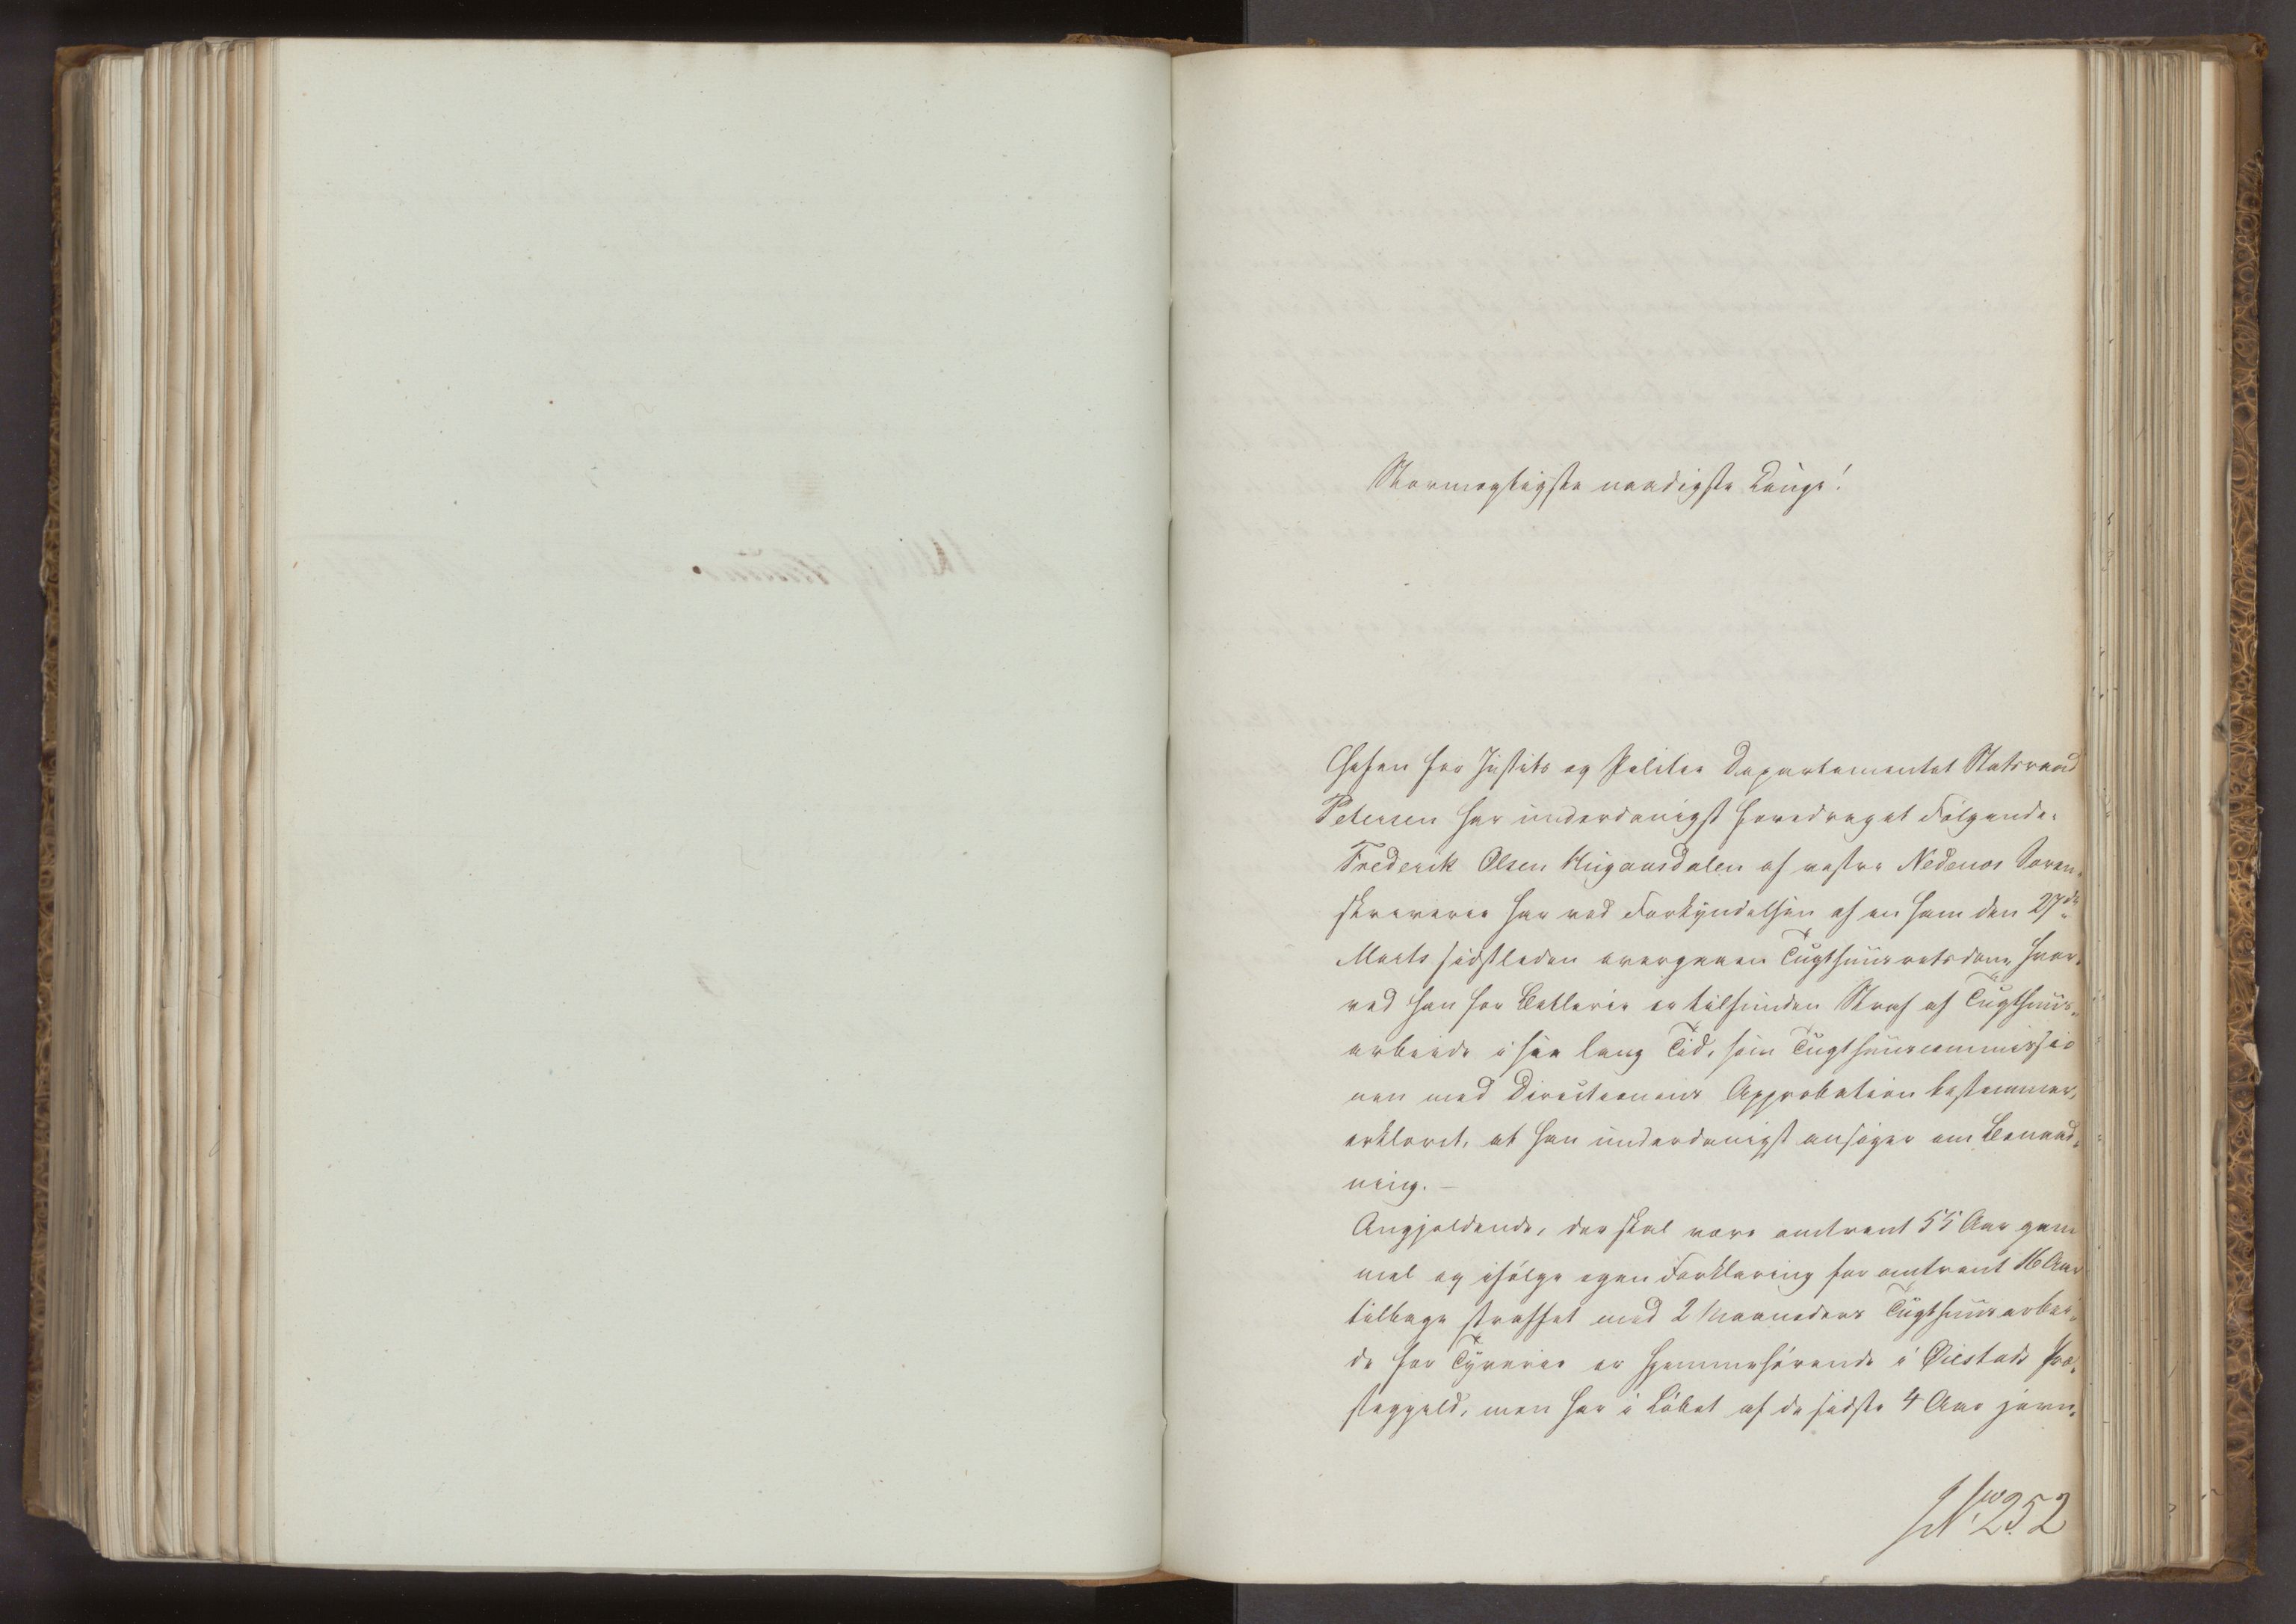 Stormægtigste naadigste Konge!
Chefen for Justits og Politie Departementet Statsraad
Petersen har underdanigst foredraget Følgende:
Frederik Olsen af vestre Nedenes Soren-
skriverie har ved Forkyndelsen af en ham den 27de
Marts sidstleden overgaaen Tugthuusretsdom, hvor-
ved han for Betlerie er tilfunden Straf af Tugthuus-
arbeide i saa lang Tid, som Tugthuuscommissio
nen med Directionens Approbation bestemmer,
erklæret, at han underdanigst ansøger om Benaad-
ning. —
Angjældende, der skal være omtrent 55 Aar gam
mel og ifølge egen Forklaring for omtrent 16 Aar
tilbage straffet med 2 Maaneders Tugthuusarbei-
de for Tyverie er hjemmehørende i Øiestads Præ-
stegjeld, men har i Løbet af de sidste 4 Aar jævn-
No 252